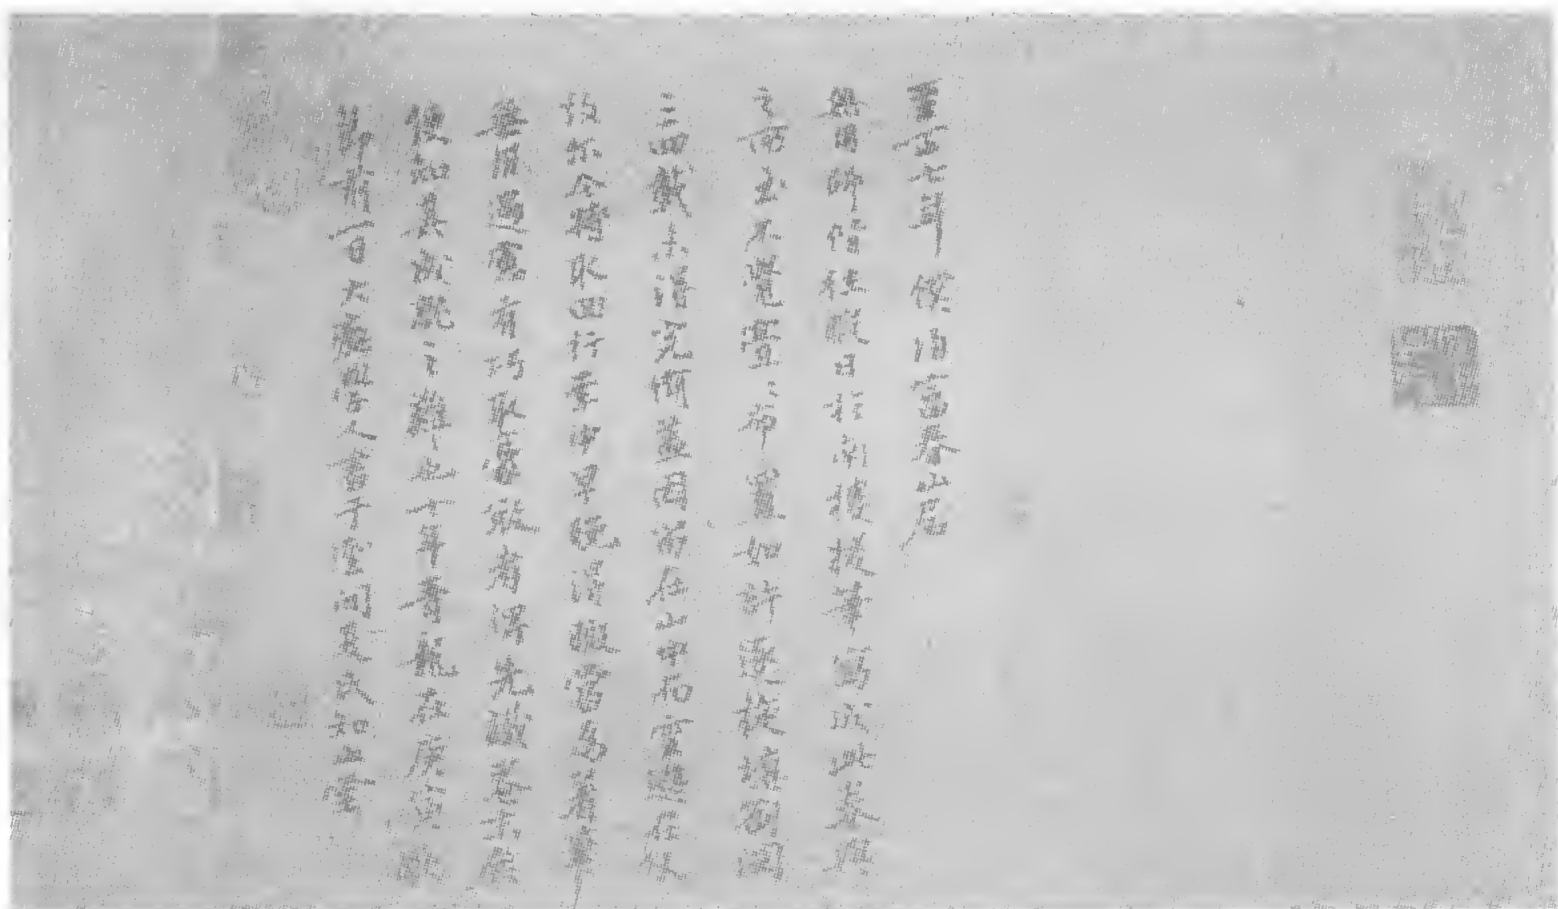 至正七年僕歸富春山居
無用師偕往暇日於南樓援筆寫成此卷興
之所至不覺亹〻布置如許逐旋填劄閱
三四載未得完備蓋因留在山中而雲遊在外
故爾今特取回行李中早晚得暇當為著筆
無用過慮有巧取豪敚者俾先識卷末庶
使知其成就之難也十年青龍在庚寅歜
節前一日大癡學人書于雲間夏氏知止堂